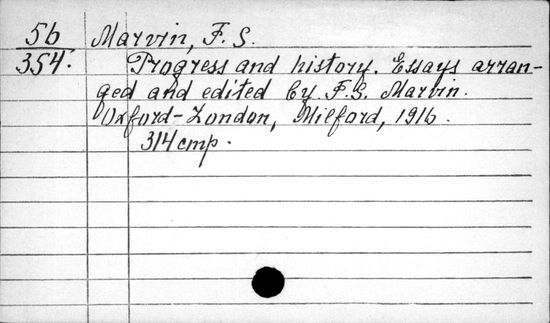 56 Marvin, F. S.
354. Progress and history. Essays arran-
ged and edited by F. S. Marvin.
Oxford-London, Milford, 1916.
314 стр.